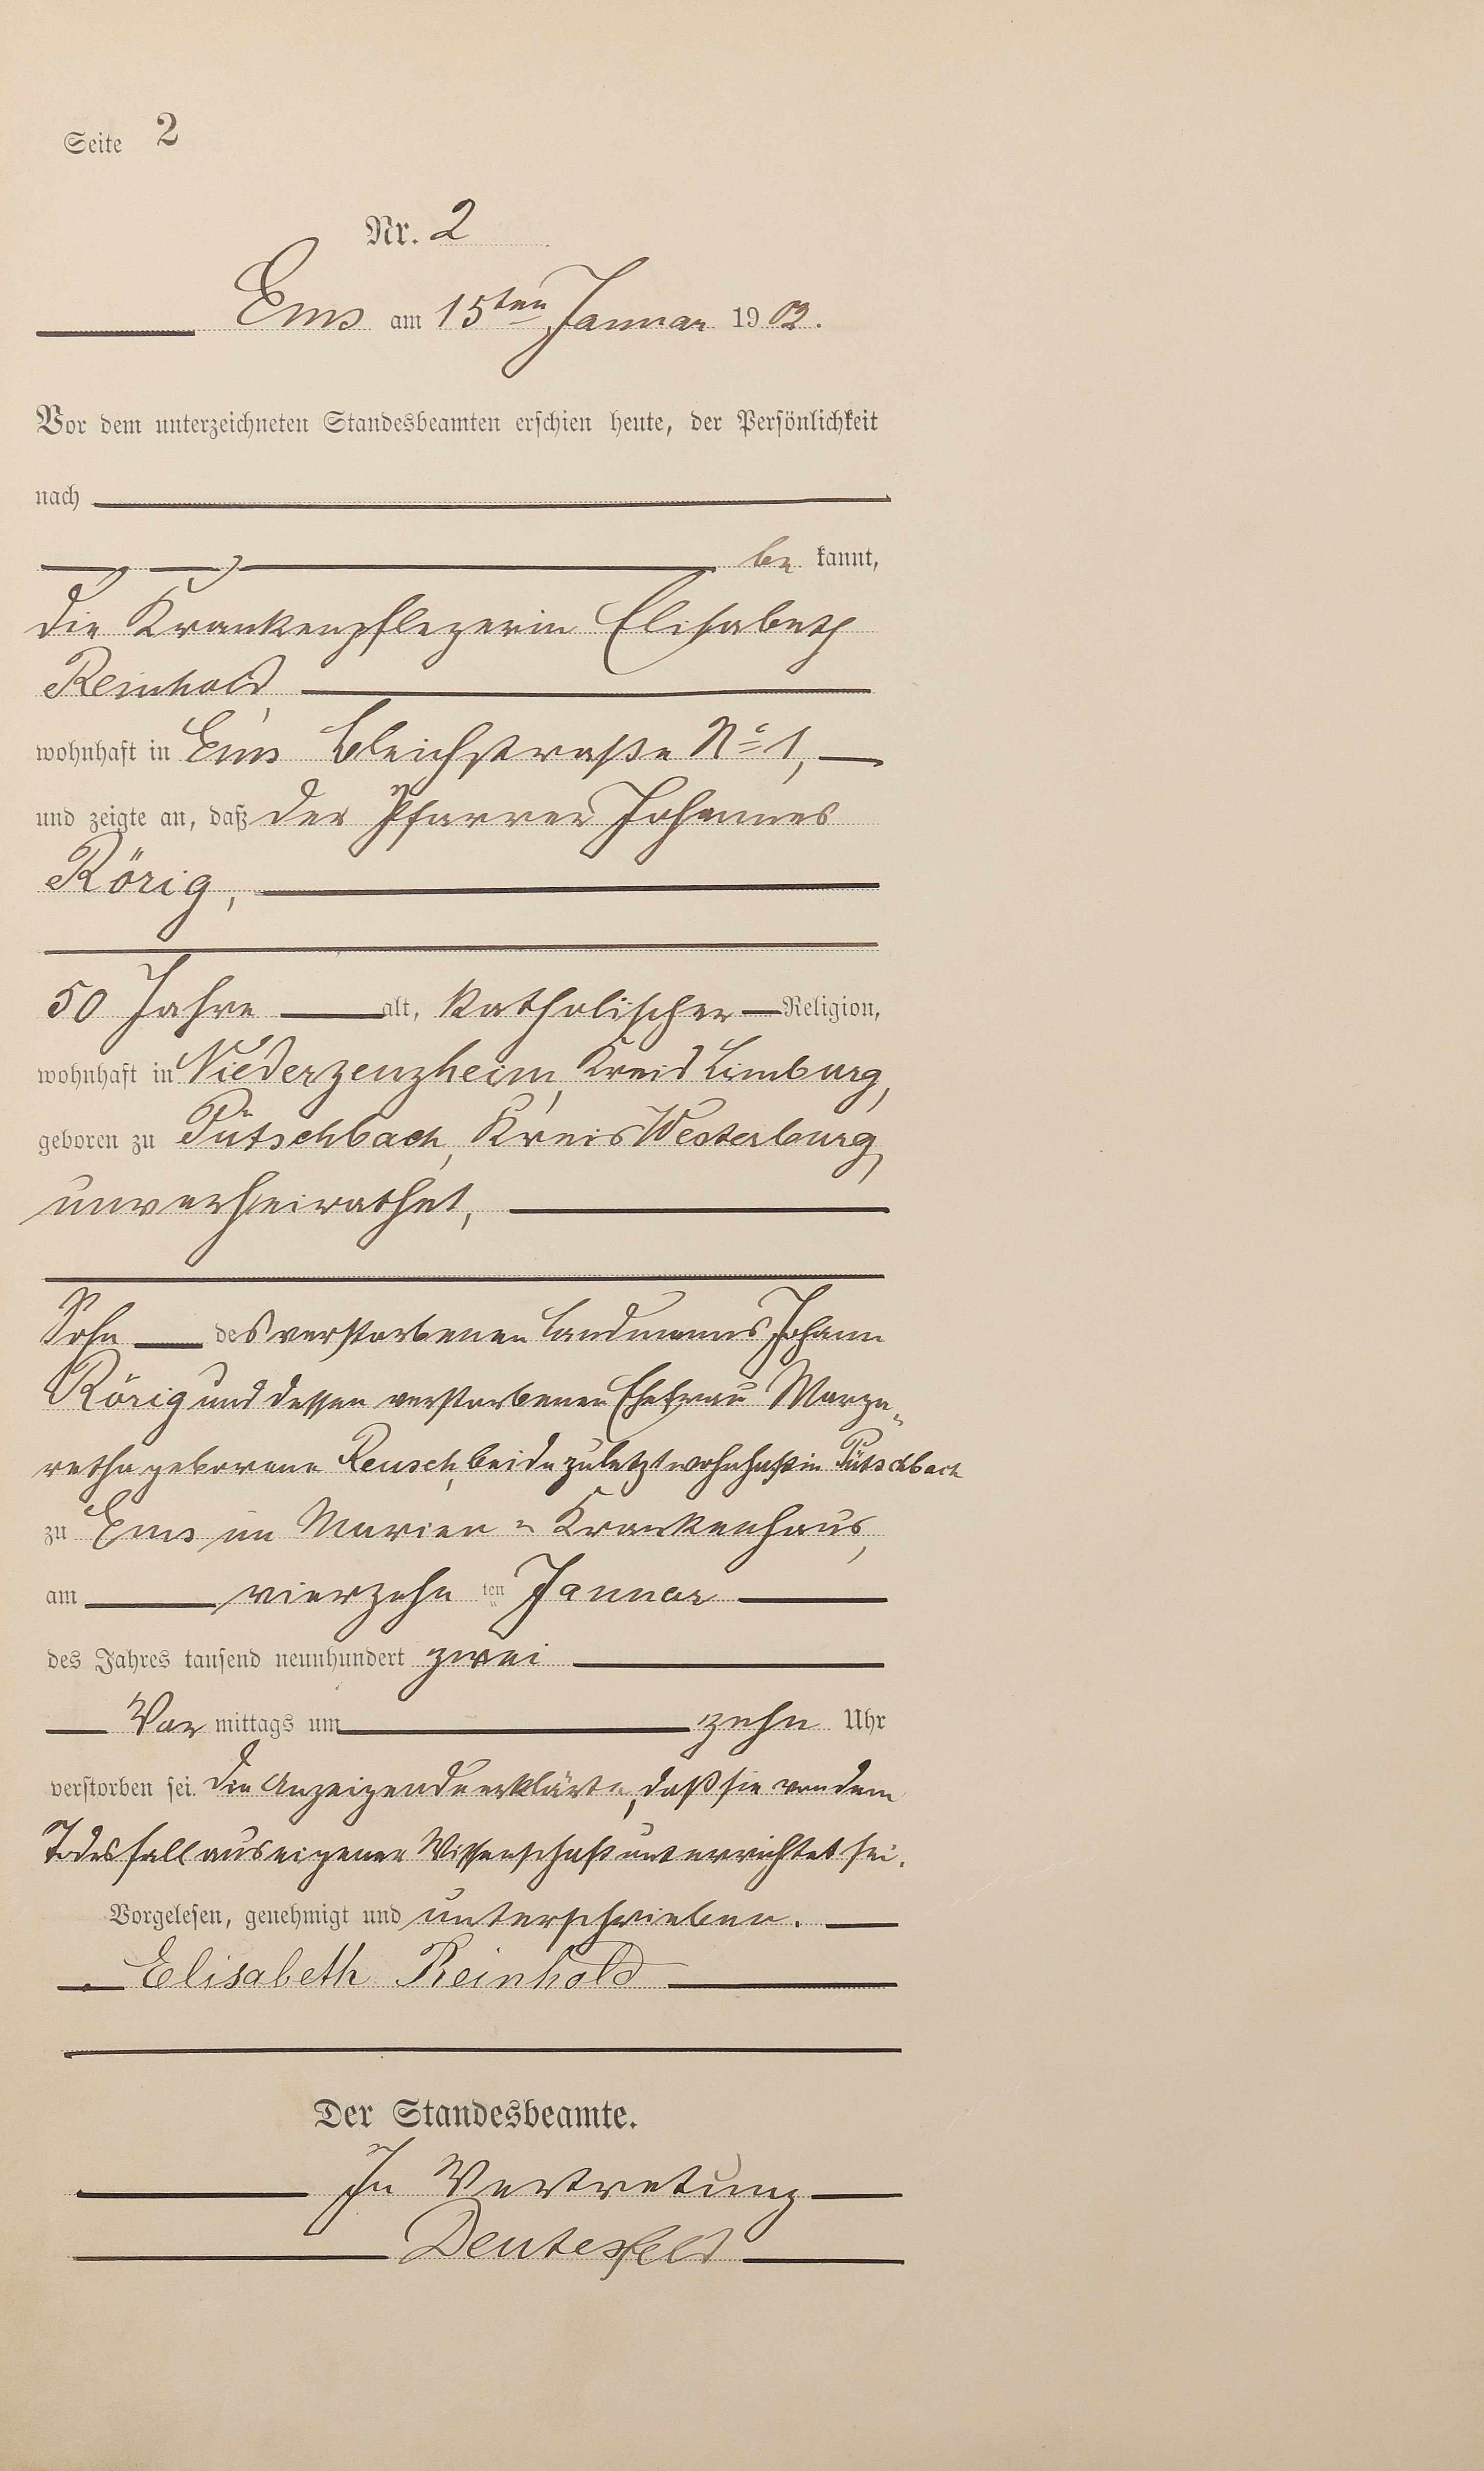 Seite 2
Nr. 2
Ems am 15ten Januar 1902.
Vor dem unterzeichneten Standesbeamten erschien heute, der Persönlichkeit
nach
be kannt,
die Krankenpflegerin Elisabeth
Reinhold,
wohnhaft in Ems Bleichstraße No 1,
und zeigte an, daß der Pfarrer Johannes
Rörig,
50 Jahre alt, katholischer Religion,
wohnhaft in Niederzeuzheim, Kreis Limburg,
geboren zu Pütschbach, Kreis Westerburg,
unverheirathet,
Sohn des verstorbenen Landmannes Johann
Rörig und dessen verstorbenen Ehefrau Marga-
retha geborene Reusch, beide zuletzt wohnhaft in Pütschbach
zu Ems im Marien-Krankenhaus,
am vierzehn ten Januar
des Jahres tausend neunhundert zwei
Vor mittags um zehn Uhr
verstorben sei. Die Anzeigende erklärte, daß sie von dem
Todesfall aus eigener Wissenschaft unterrichtet sei.
Vorgelesen, genehmigt und unterschrieben.
Elisabeth Reinhold
Der Standesbeamte.
In Vertretung
Deutesfeld